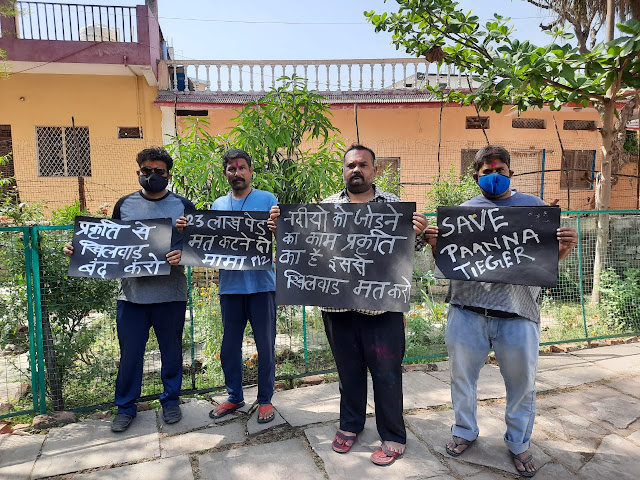 प्रकृति से
खिलवाड़
बंद करो
23 लाख पेड़
मत कटने दो
मामा
नदीयो को जोड़ने
का काम प्रकृति
का है इससे
खिलवाड़ मत करो
SAVE
PAANNA
TIEGER